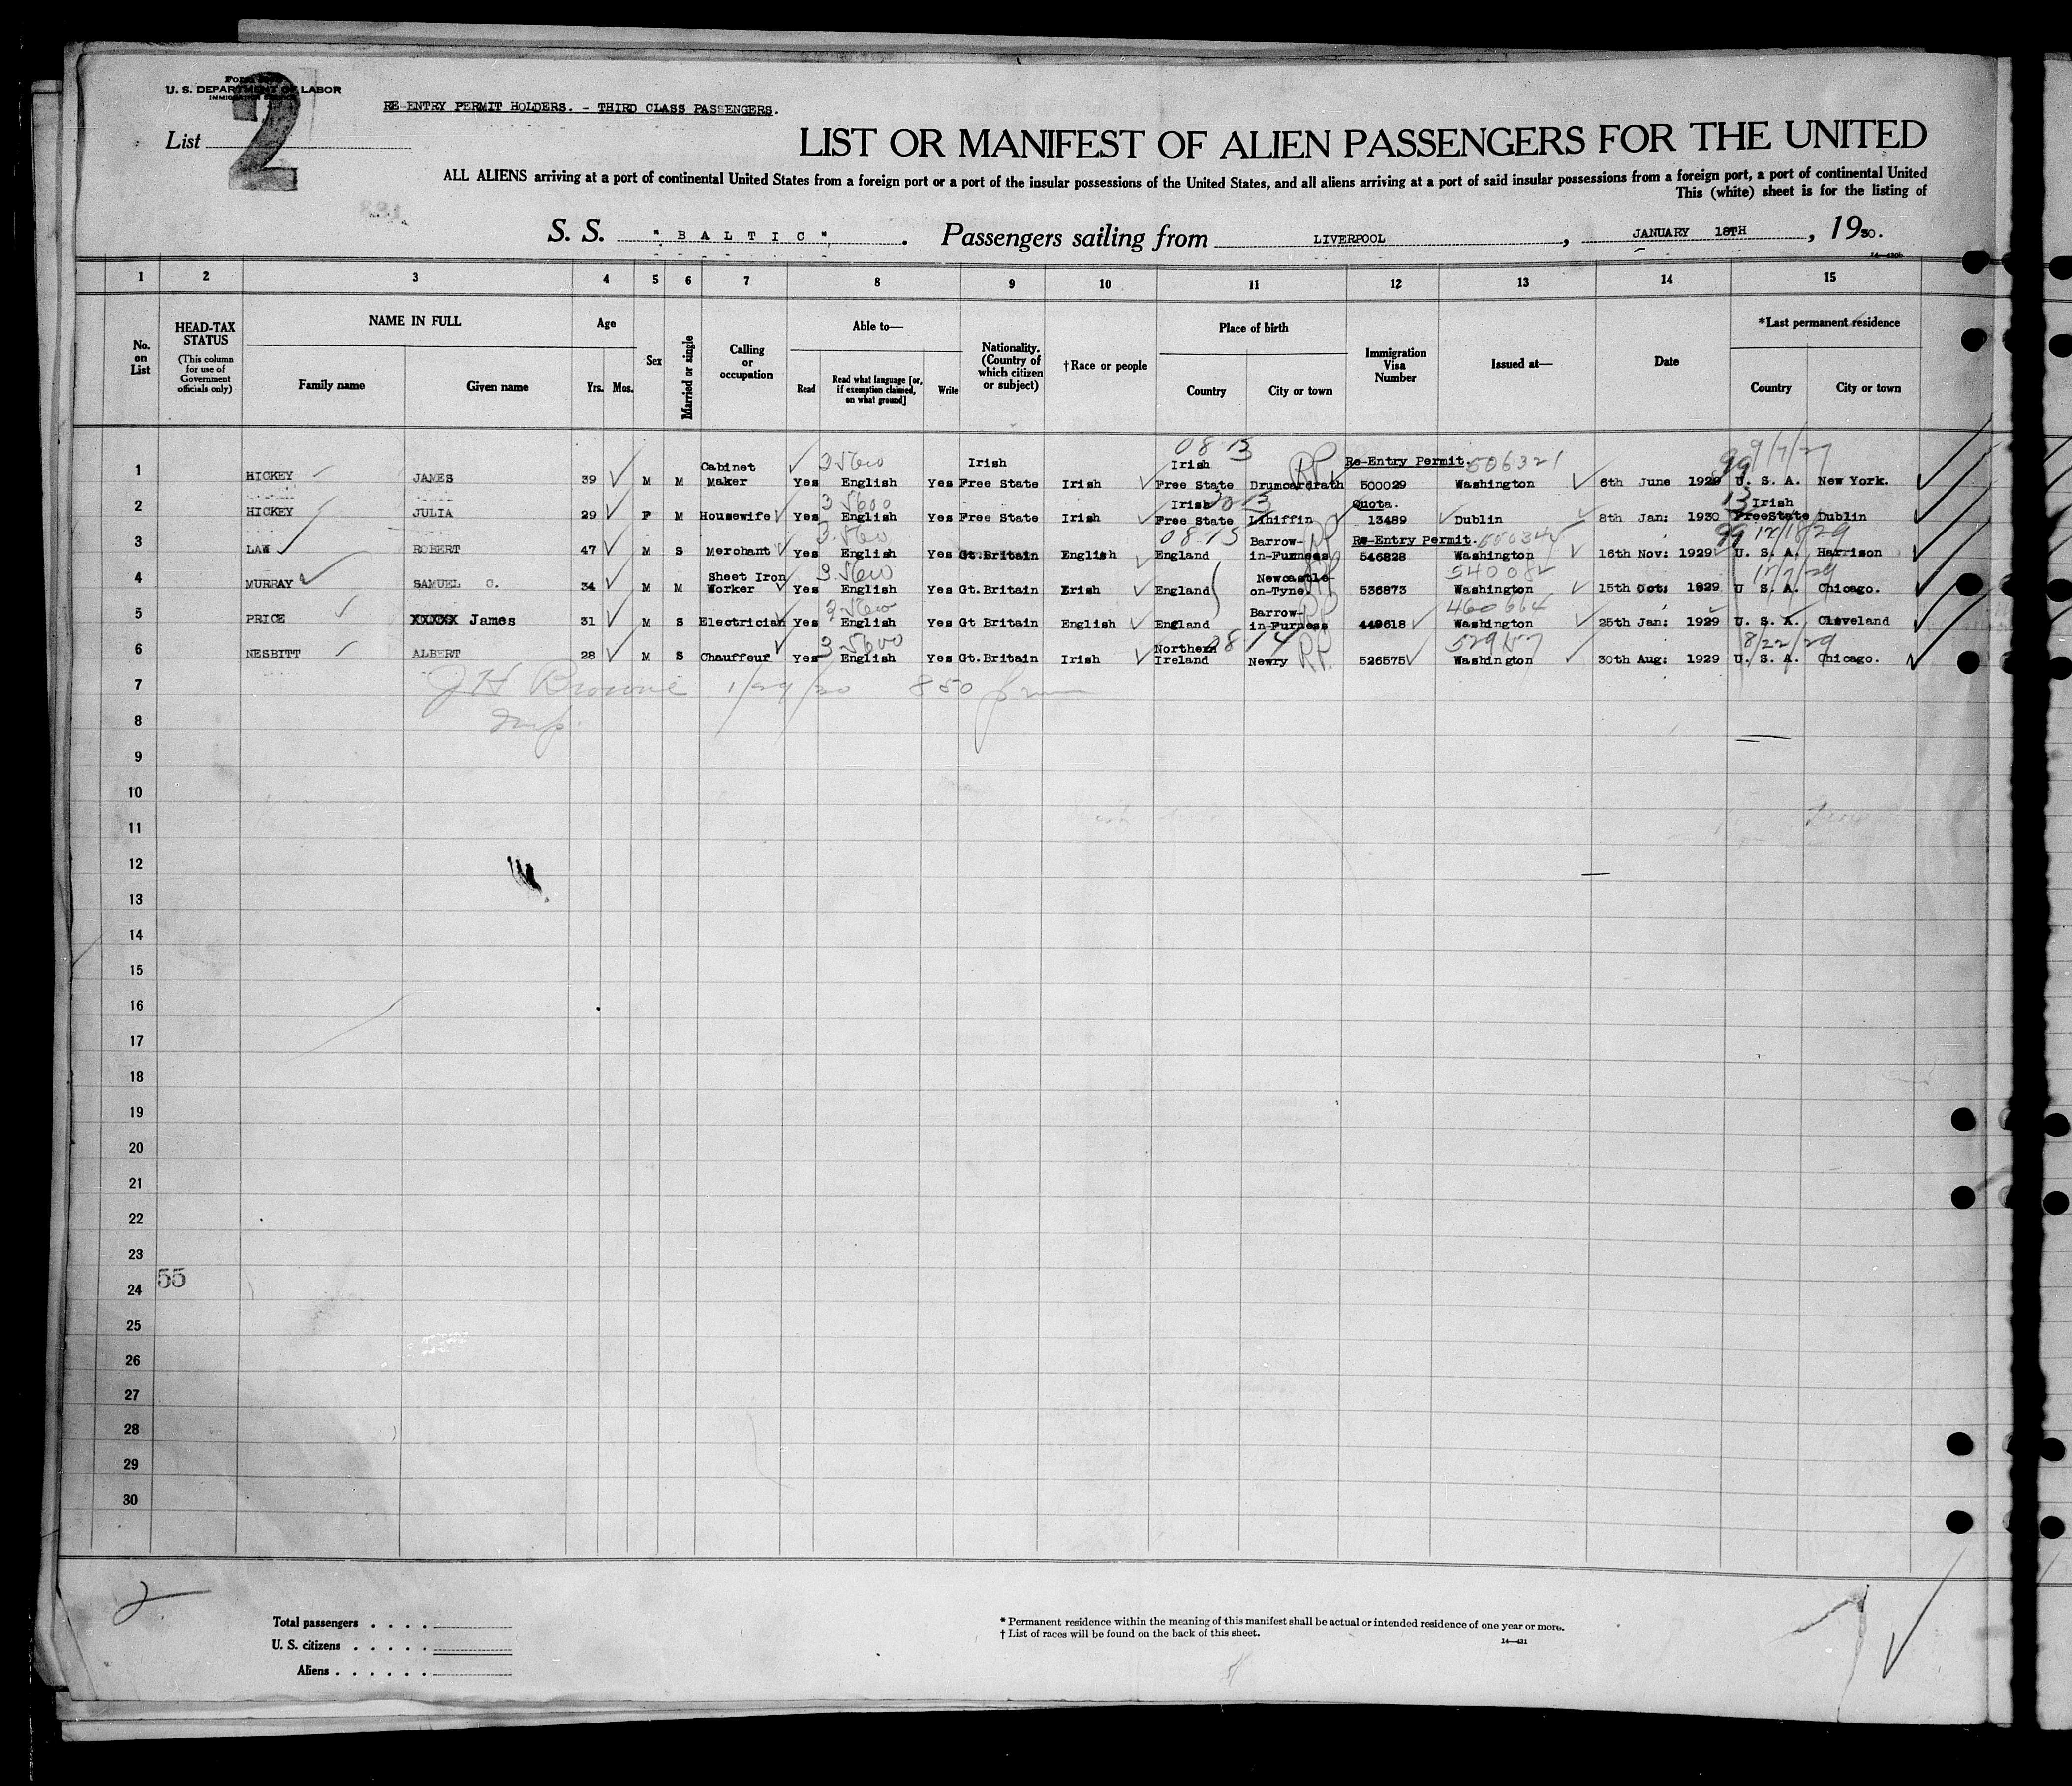 Form
U. S. DEPARTMENT OF LABOR
IMMIGRATION
2
List
RE-ENTRY PERMIT HOLDERS. - THIRD CLASS PASSENGERS.
LIST OR MANIFEST OF ALIEN PASSENGERS FOR THE UNITED
ALL ALIENS arriving at a port of continental United States from a foreign port or a port of the insular possessions of the United States, and all aliens arriving at a port of said insular possessions from a foreign port, a port of continental United
This (white) sheet is for the listing of
S. S. "BALTIC". Passengers sailing from LIVERPOOL, JANUARY 18TH, 1930.
1 2 3 4 5 6 7 8 9 10 11 12 13 14 15
No. on List
HEAD-TAX STATUS (This column for use of Government officials only)
NAME IN FULL
Family name Given name
Age
Yrs. Mos.
Sex
Married or single
Calling or occupation
Able to—
Read Read what language [or, if exemption claimed, on what ground] Write
Nationality. (Country of which citizen or subject)
†Race or people
Place of birth
Country City or town
Immigration Visa Number
Issued at—
Date
*Last permanent residence
Country City or town
1 HICKEY JAMES 39 M M Cabinet Maker Yes English Yes Irish Free State Irish 08 13 Irish Free State Drumcardrath RP Re-Entry Permit. 500029 506321 Washington 6th June 1929 99 9/7/27 U. S. A. New York.
2 HICKEY JULIA 29 F M Housewife Yes 3 5600 English Yes Free State Irish Irish Free State Lihiffin Quota. 13489 Dublin 8th Jan: 1930 13 Irish FreeState Dublin
3 LAW ROBERT 47 M S Merchant Yes English Yes Gt.Britain English England Barrow-in-Furness Re-Entry Permit. 546828 Washington 16th Nov: 1929 99 12/18/29 U. S. A. Harrison
4 MURRAY SAMUEL C. 34 M M Sheet Iron Worker Yes English Yes Gt.Britain Irish England Newcastle-on-Tyne 536873 Washington 15th Oct: 1929 U S. A. Chicago.
5 PRICE XXXXX James 31 M S Electrician Yes English Yes Gt Britain English England Barrow-in-Furness 449618 Washington 25th Jan: 1929 U. S. A. Cleveland
6 NESBITT ALBERT 28 M S Chauffeur Yes 3 5600 English Yes Gt.Britain Irish 08 14 Northern Ireland Newry RP. 526575 529157 Washington 30th Aug: 1929 8/22/29 U. S. A. Chicago.
7 J H Browne 1/29/30 850
8 Insp.
9
10
11
12
13
14
15
16
17
18
19
20
21
22
23
55
24
25
26
27
28
29
30
2
Total passengers . . . .
U. S. citizens . . . . .
Aliens . . . . . .
* Permanent residence within the meaning of this manifest shall be actual or intended residence of one year or more.
† List of races will be found on the back of this sheet.
14—431